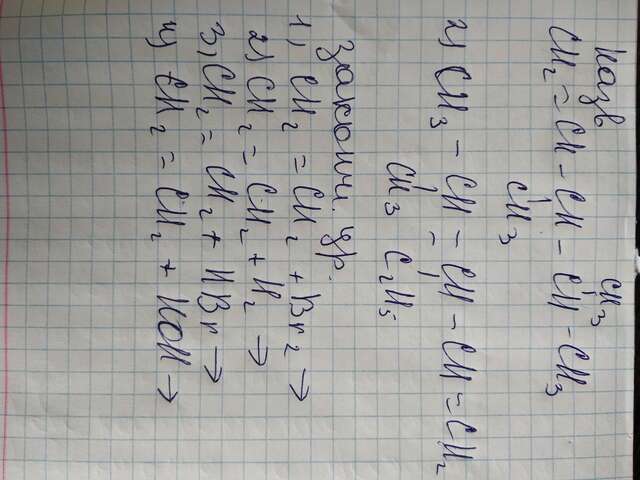 Назв
CH₃
CH₂ = CH – CH – CH – CH₃
CH₃
2) CH₃ – CH – CH – CH – CH = CH₂
CH₃ C₂H₅
Закончи. ур.
1) CH₂ = CH₂ + Br₂ →
2) CH₂ = CH₂ + H₂ →
3) CH₂ = CH₂ + HBr →
4) CH₂ = CH₂ + HOH →